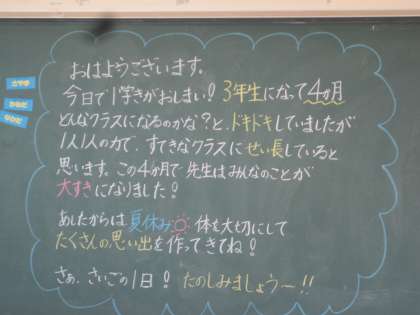 おはようございます。
今日で1学きがおしまい！3年生になって4か月
どんなクラスになるのかな？と、ドキドキしていましたが
1人1人の力で、すてきなクラスにせい長していると
思います。この4か月で先生はみんなのことが
大すきになりました！
あしたからは夏休み 体を大切にして
たくさんの思い出を作ってきてね！
さぁ、さいごの1日！たのしみましょう〜!!